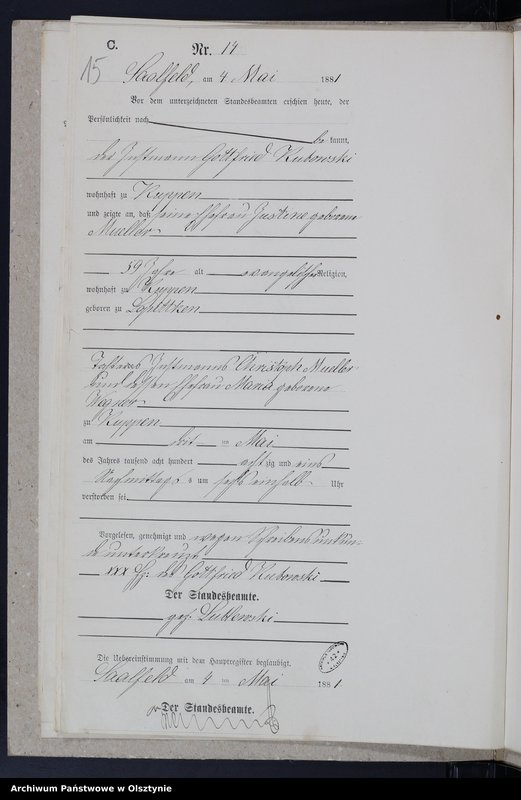 C.
Nr. 14
15
Saalfeld, am 4 Mai 1881
Vor dem unterzeichneten Standesbeamten erschien heute, der
Persönlichkeit nach
be kannt,
der Instmann Gottfried Kubowski
wohnhaft zu Kuppen
und zeigte an, daß seine Ehefrau Justine geborene
Mueller
59 Jahre alt evangelischer Religion,
wohnhaft zu Kuppen
geboren zu
Tochter des Instmanns Christoph Mueller
und dessen Ehefrau Maria geborene
zu Kuppen
am im Mai
des Jahres tausend acht hundert achtzig und eins
Nachmittags um sechs einhalb Uhr
verstorben sei.
Vorgelesen, genehmigt und wegen Schreibensunkun-
de unterkreuzt
xxx Hz: des Gottfried Kubowski
Der Standesbeamte.
gez.
Die Uebereinstimmung mit dem Hauptregister beglaubigt.
Saalfeld am 4 im Mai 1881
Der Standesbeamte.
Archiwum Państwowe w Olsztynie